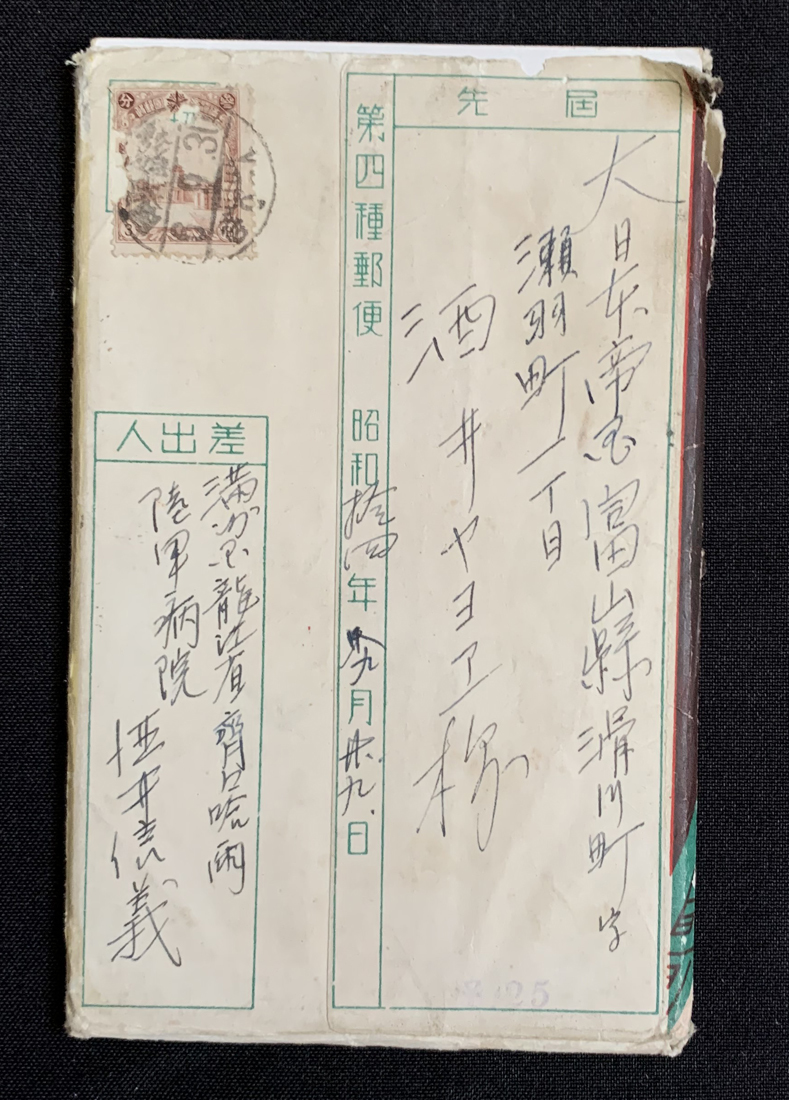 届先
大日本帝国富山縣滑川町字
瀬羽町一丁目
酒井ヤヨエ様
第四種郵便 昭和拾四年九月廿九日
差出人
満州国龍江省齊々哈爾
陸軍病院
酒井信義